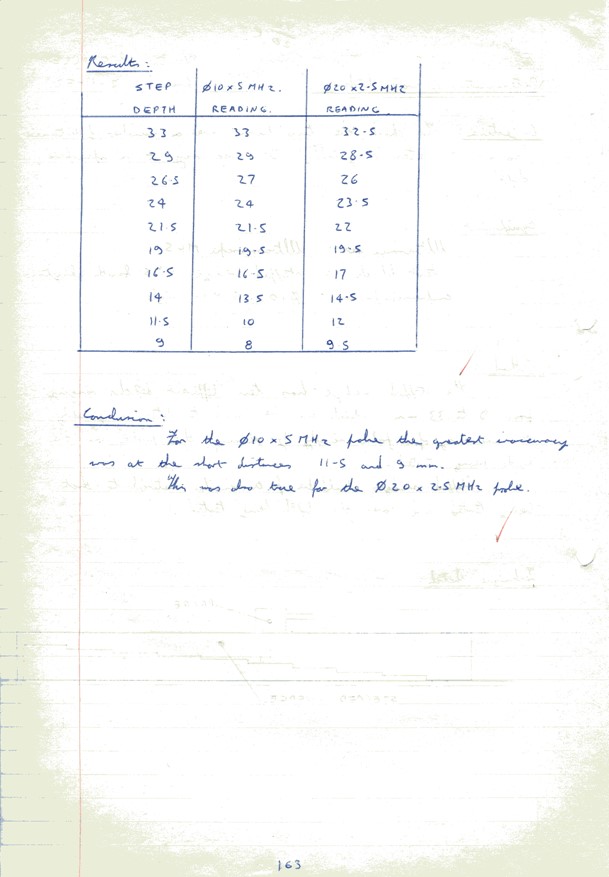 Results:
STEP DEPTH | Ø10 x 5 MHz. READING. | Ø20 x 2.5 MHz READING
33 | 33 | 32.5
29 | 29 | 28.5
26.5 | 27 | 26
24 | 24 | 23.5
21.5 | 21.5 | 22
19 | 19.5 | 19.5
16.5 | 16.5 | 17
14 | 13.5 | 14.5
11.5 | 10 | 12
9 | 8 | 9.5
Conclusion:
For the Ø10 x 5 MHz probe the greatest inaccuracy
was at the short distances 11.5 and 9 mm.
This was also true for the Ø20 x 2.5 MHz probe.
163